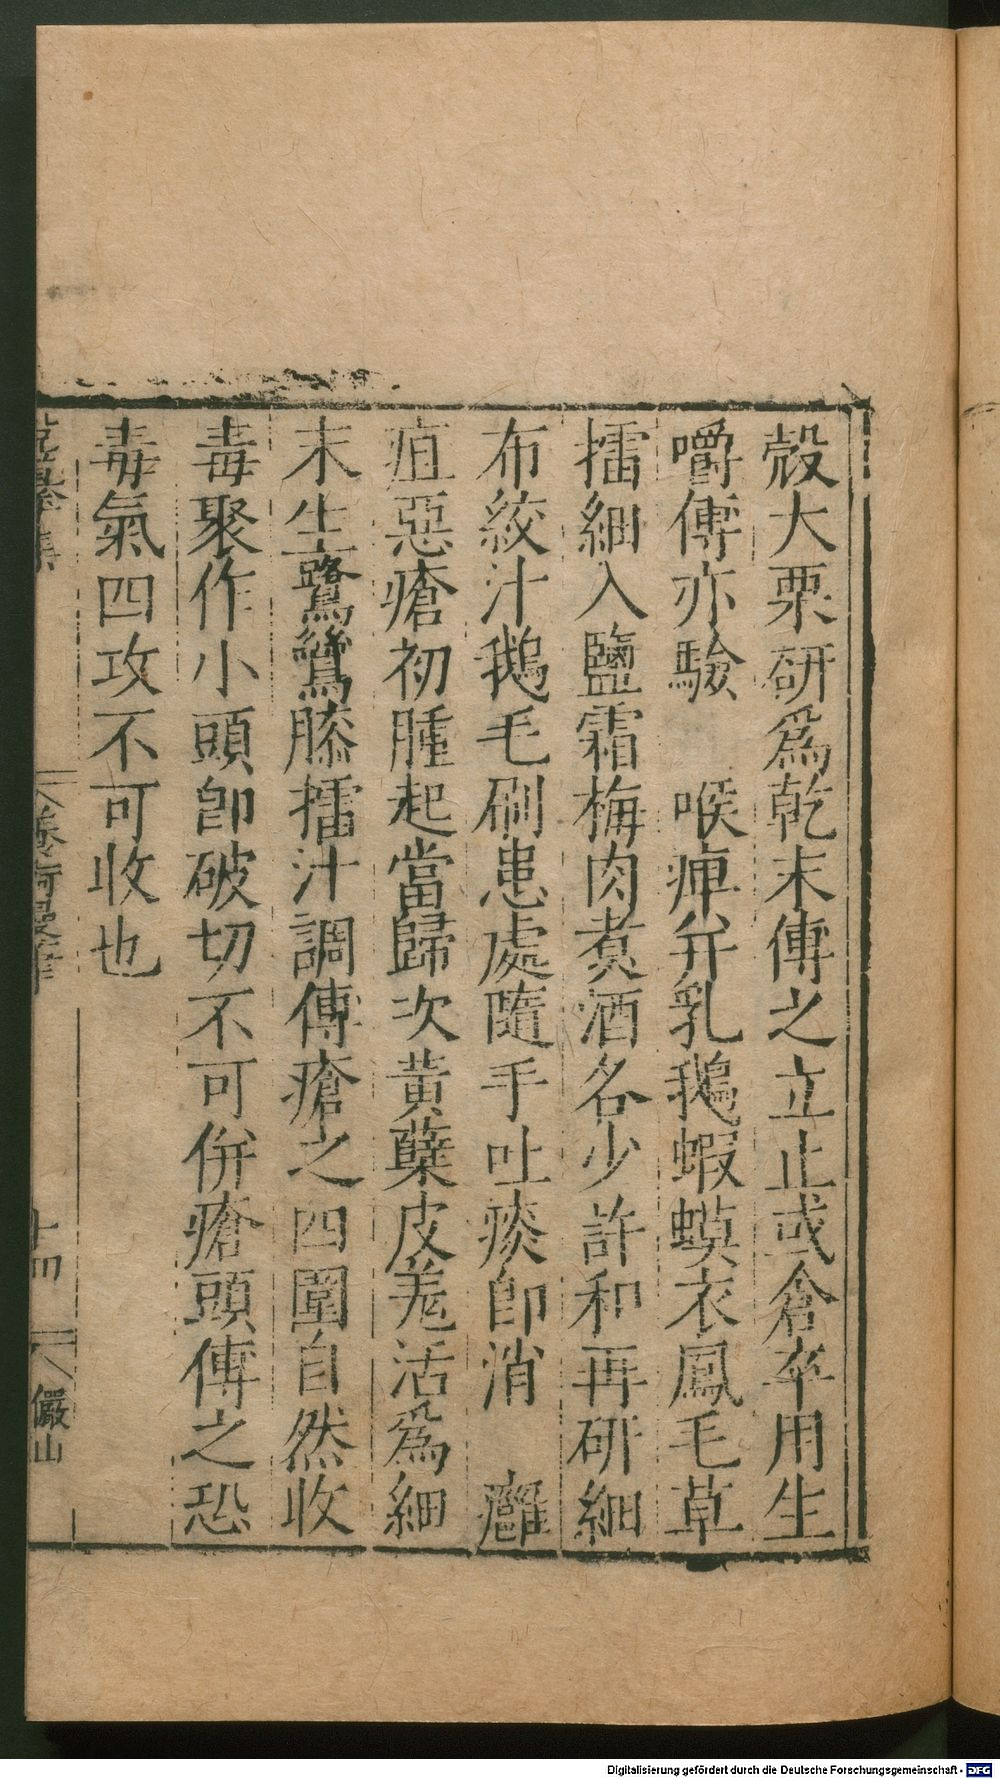 殼大栗研爲乾末傅之立止或倉卒用生
嚼傅亦驗　喉痺幷乳鵝蝦蟆衣鳳毛草
擂細入鹽霜梅肉煮酒各少許和再研細
布絞汁鵝毛刷患處隨手吐痰卽消　癰
疽惡瘡初腫起當歸次黃蘗皮羗活爲細
末生鷺鷥膝擂汁調傅瘡之四圍自然收
毒聚作小頭卽破切不可併瘡頭傅之恐
毒氣四攻不可收也
十四
儼山
Digitalisierung gefördert durch die Deutsche Forschungsgemeinschaft - DFG